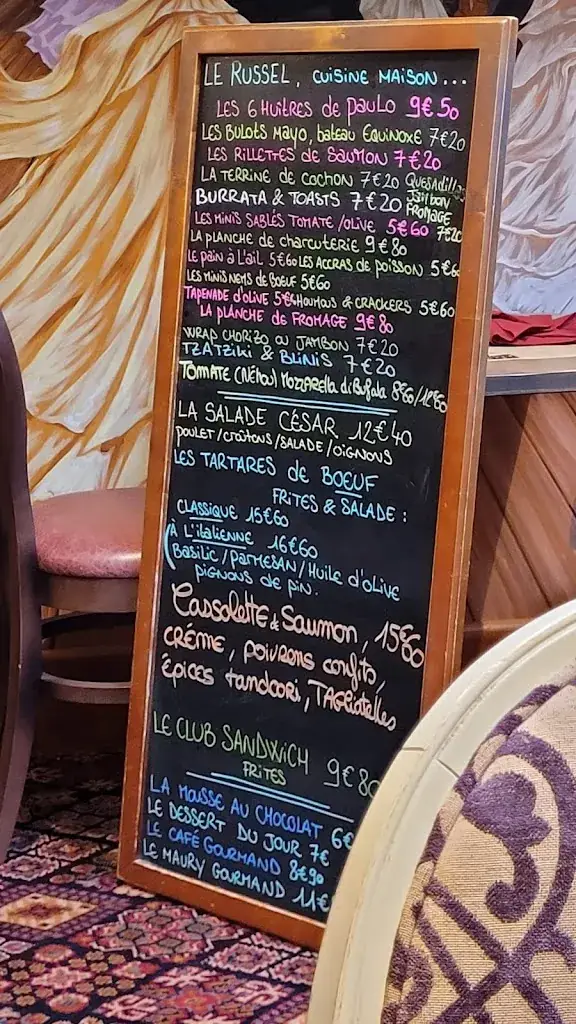 LE RUSSEL, CUISINE MAISON...
LES 6 HUITRES de PAULO 9€50
LES BULOTS MAYO, bateau EQUINOXE 7€20
LES RILLETTES de SAUMON 7€20
LA TERRINE de COCHON 7€20 QUESADILLAS
JAMBON
BURRATA & TOASTS 7€20 FROMAGE
LES MINIS SABLÉS TOMATE/OLIVE 5€60 7€20
LA PLANCHE de CHARCUTERIE 9€80
LE PAIN À L'AIL 5€60 LES ACCRAS de POISSON 5€60
LES MINIS NEMS de BOEUF 5€60
TAPENADE d'OLIVE 5€60 HOUMOUS & CRACKERS 5€60
LA PLANCHE de FROMAGE 9€80
WRAP CHORIZO OU JAMBON 7€20
TZATZIKI & BLINIS 7€20
TOMATE (Néhou) MOZZARELLA di Bufala 8€60/12€60
LA SALADE CÉSAR 12€40
POULET/CROÛTONS/SALADE/OIGNONS
LES TARTARES de BOEUF
FRITES & SALADE :
CLASSIQUE 15€60
À L'ITALIENNE 16€60
(BASILIC/PARMESAN/HUILE d'OLIVE
PIGNONS de PIN.
Cassolette de Saumon, 15€60
CRÉME, POIVRONS CONFITS,
Épices TANDOORI, TAGLIATELLES
LE CLUB SANDWICH 9€80
FRITES
LA MOUSSE AU CHOCOLAT 6€
LE DESSERT DU JOUR 7€
LE CAFÉ GOURMAND 8€90
LE MAURY GOURMAND 11€